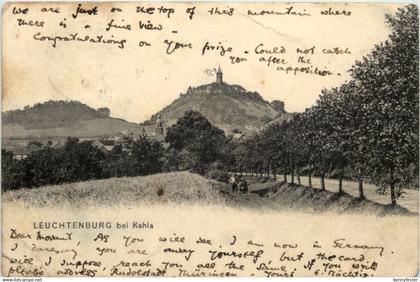 We are just on the top of this mountain where
there is a fine view.
Congratulations on your prize. Could not catch
you after the
apposition
LEUCHTENBURG bei Kahla
Dear As you will see, I am now in Germany
I daresay, you are away yourself, but the card
will I suppose, reach you all the same, If you will write
please address Rudolstadt Thüringen Yours
bennyfester